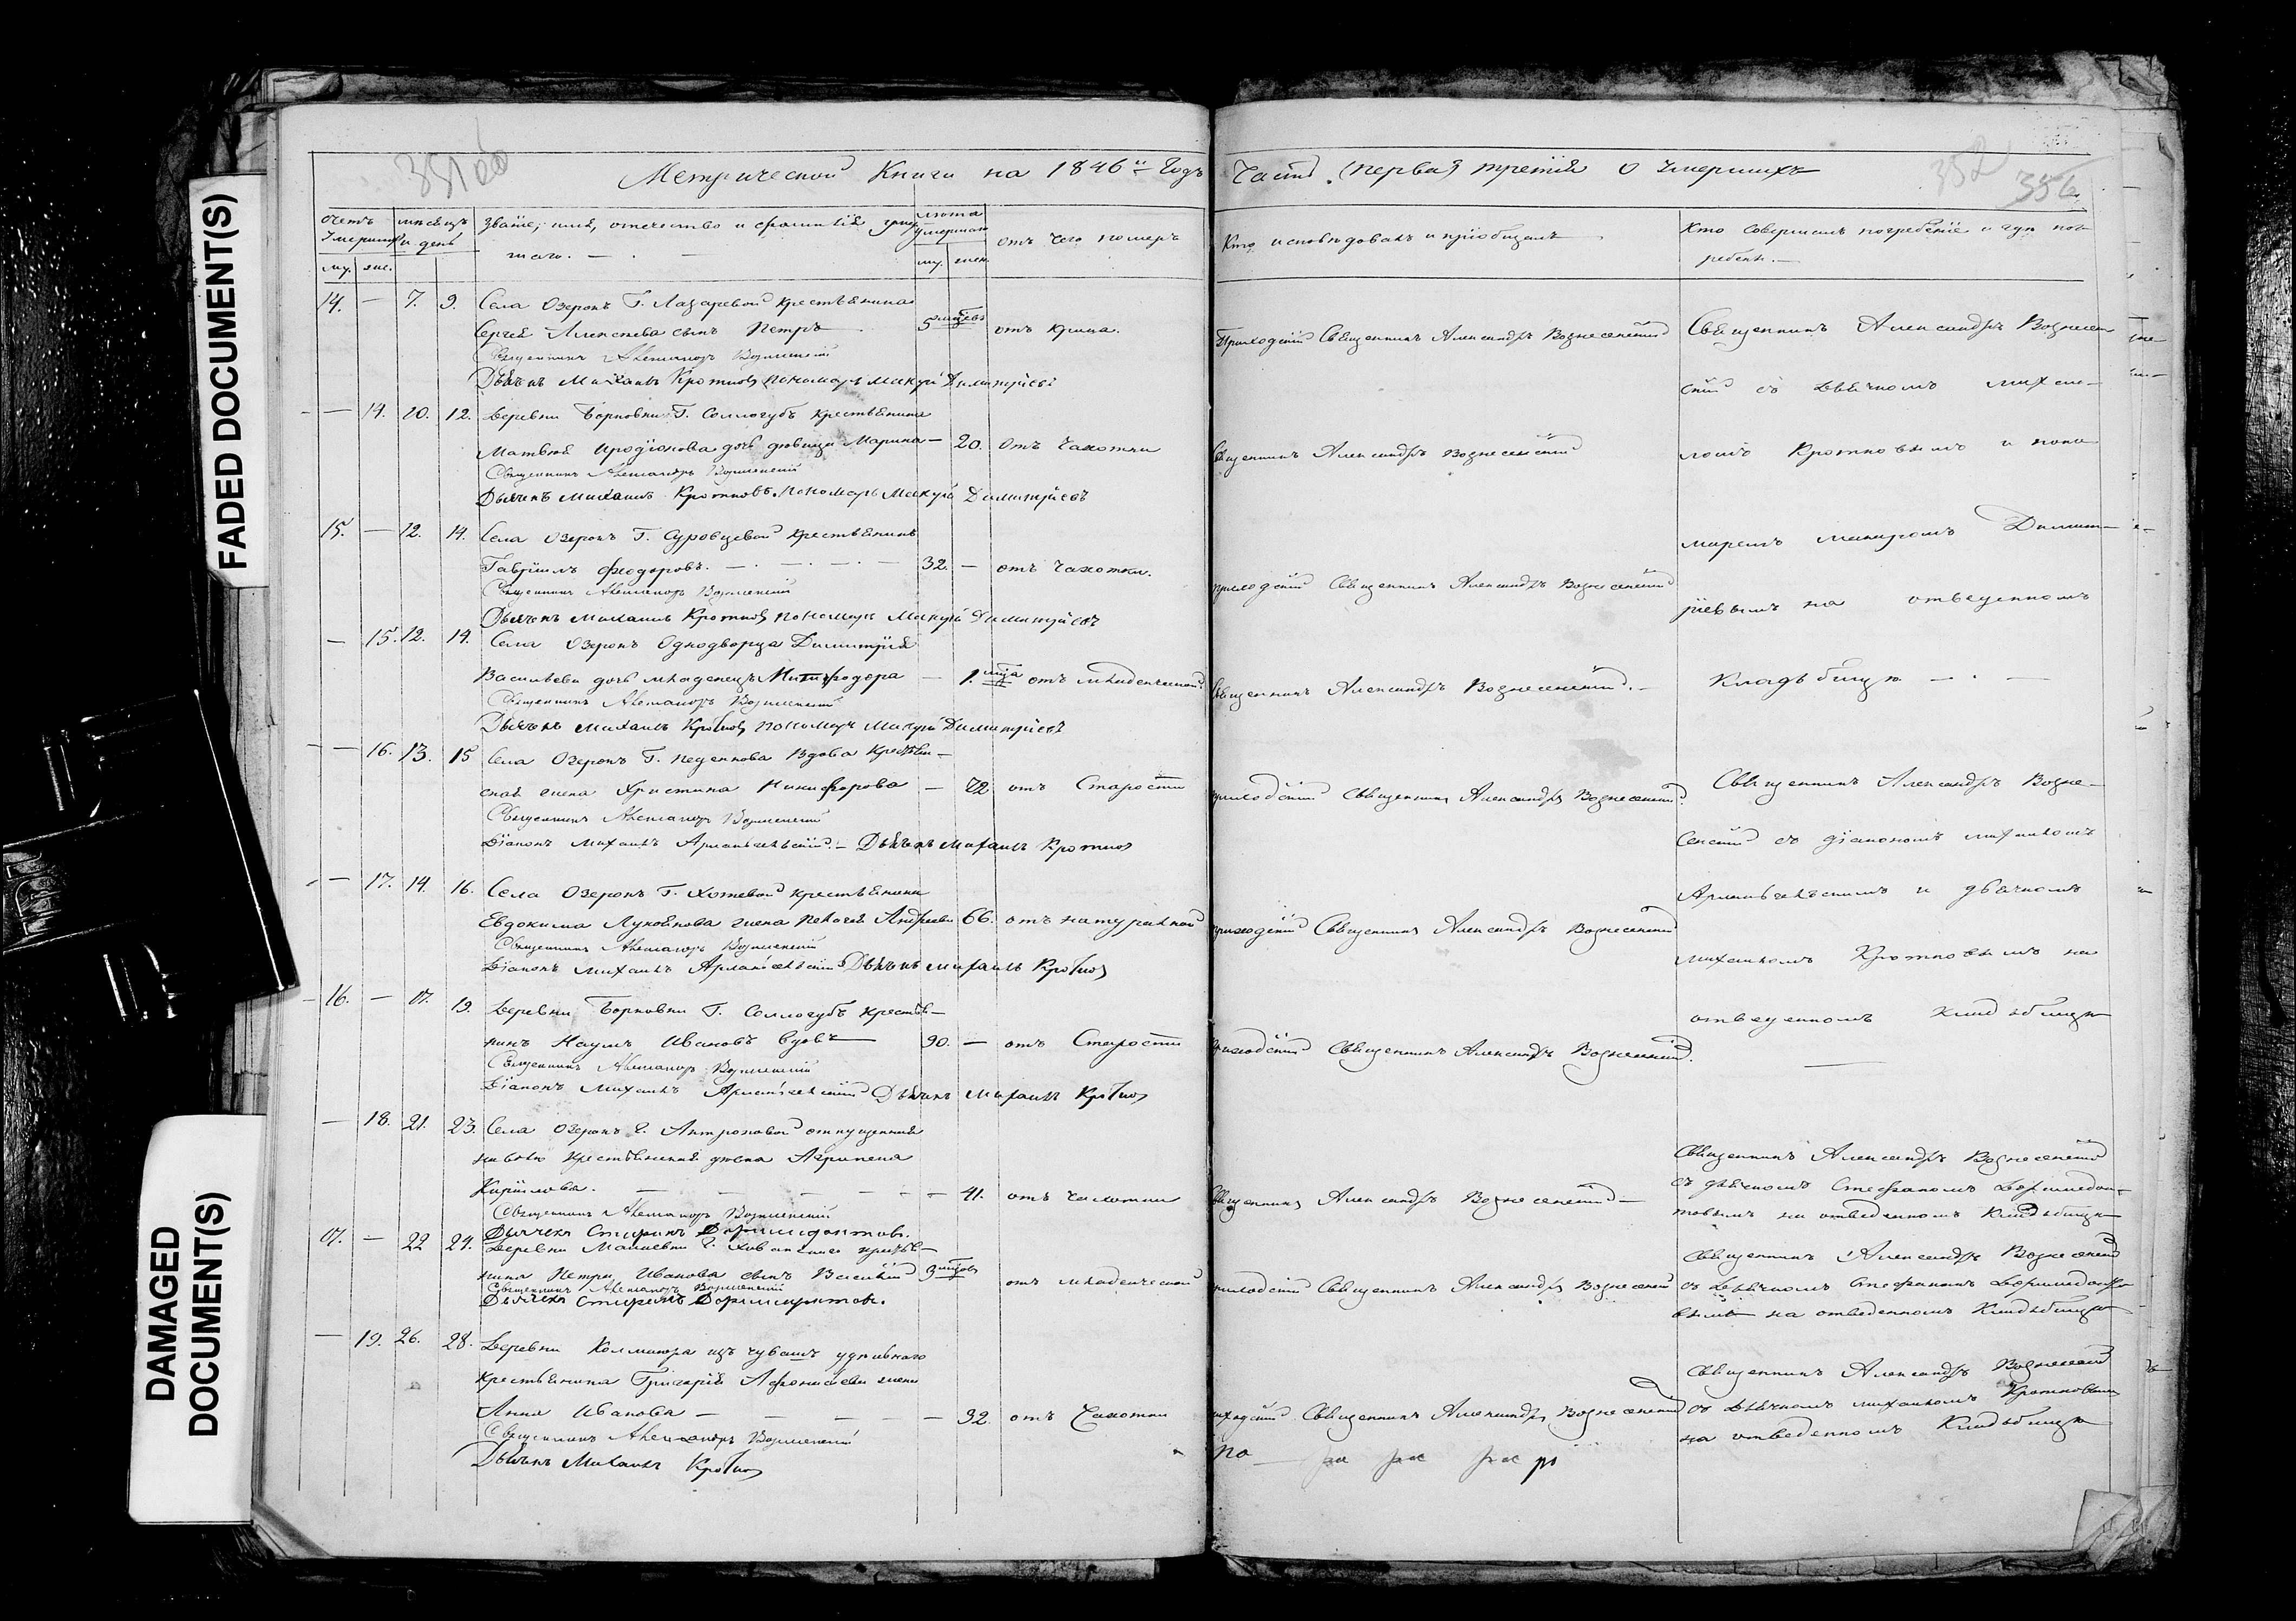 FADED DOCUMENT(S)
DAMAGED
DOCUMENT(S)
Метрической Книги на 1846й Годъ Часть (первая) третія о умершихъ
352
356
счетъ умершихъ
мѣсяцъ и день
Званіе, имя, отечество и фамилія умер
шаго. —
лѣта умершаго
отъ чего померъ
Кто исповѣдовалъ и пріобщалъ
Кто Совершалъ погребеніе и гдѣ пог
ребены. —
му. жен.
му. жен.
14. — 7. 9. Села Озерокъ Г. Лазаревой крестьянина
Сергея Алексѣева сынъ Петръ 5 мцевъ отъ крика. Приходскій Священникъ Александръ Вознесенскій
Священникъ Александръ Вознесенскій
Дьячекъ Михаилъ Кротковъ пономарь Макарій Димитріевъ
— 14. 10. 12. Деревни Борковки Г. Соллогубъ крестьянина
Матвея Иродіонова дочь дѣвица Марина — 20. отъ чахотки Священникъ Александръ Вознесенскій
Священникъ Александръ Вознесенскій
Дьячекъ Михаилъ Кротковъ. пономарь Макарій Димитріевъ
15. — 12. 14. Села Озерокъ Г. Суровцевой крестьянинъ
Гавріилъ Феодоровъ. — 32. — отъ чахотки. приходскій Священникъ Александръ Вознесенскій
Священникъ Александръ Вознесенскій
Дьячекъ Михаилъ Кротковъ пономарь Макарій Димитріевъ
— 15. 12. 14. Села Озерокъ Однодворца Димитрія
Васильева дочь младенецъ Митродора — 1. мца отъ младенческой Священникъ Александръ Вознесенскій. —
Священникъ Александръ Вознесенскій
Дьячекъ Михаилъ Кротковъ пономарь Макарій Димитріевъ
Священникъ Александръ Вознесен
скій съ Дьячкомъ Михаи—
ломъ Кротковымъ и поно
маремъ Макаромъ Димит—
ріевымъ на отведенномъ
Кладьбищѣ — . —
— 16. 13. 15 Села Озерокъ Г. Вдова Крестьян—
ская жена Христина Никифорова — 72 отъ Старости приходскій Священникъ Александръ Вознесенскій.
Священникъ Александръ Вознесенскій
Діаконъ Михаилъ — Дьячекъ Михаилъ Кротковъ
— 17. 14. 16. Села Озерокъ Г. Хотевой крестьянина
Евдокима Лукоянова жена Пелагея Андреева 66. отъ натуральной приходскій Священникъ Александръ Вознесенскій
Священникъ Александръ Вознесенскій
Діаконъ Михаилъ Дьячекъ Михаилъ Кротковъ
16. — 17. 19. Деревни Борковки Г. Соллогубъ крестья—
нинъ Наумъ Ивановъ вдовъ — 90. — отъ Старости приходскій Священникъ Александръ Вознесенскій.
Священникъ Александръ Вознесенскій
Діаконъ Михаилъ Дьячекъ Михаилъ Кротковъ
Священникъ Александръ Возне—
сенскій съ діакономъ Михаиломъ
и дьячкомъ
Михаиломъ Кротковымъ на
отведенномъ Кладьбищѣ
— 18. 21. 23. Села Озерокъ Г. Антроповой отпущенная
на волю крестьянская жена Агрипена
Кирилова. — 41. отъ чахотки Священникъ Александръ Вознесенскій —
Священникъ Александръ Вознесенскій
Дьячекъ Стефанъ Доримедонтовъ.
Священникъ Александръ Вознесенскій
съ дьячкомъ Стефаномъ Доримедон—
товымъ на отведенномъ Кладьбищѣ
17. — 22 24. Деревни Г. Хованскаго крестья—
нина Петра Иванова сынъ Василій 3 мцовъ отъ младенческой приходскій Священникъ Александръ Вознесенскій
Священникъ Александръ Вознесенскій
Дьячекъ Стефанъ Доримедонтовъ.
Священникъ Александръ Вознесенскій
съ Дьячкомъ Стефаномъ Доримедонто
вымъ на отведенномъ Кладьбищѣ
— 19. 26. 28. Деревни изъ чувашъ удѣльнаго
крестьянина Григорія Афонасьева жена
Анна Иванова — 32. отъ Чахотки приходскій Священникъ Александръ Вознесенскій
Священникъ Александръ Вознесенскій
Дьячекъ Михаилъ Кротковъ
Священникъ Александръ Вознесенскій
съ Дьячкомъ Михаиломъ Кротковымъ
на отведенномъ Кладьбищѣ
по — ра ра ра рі